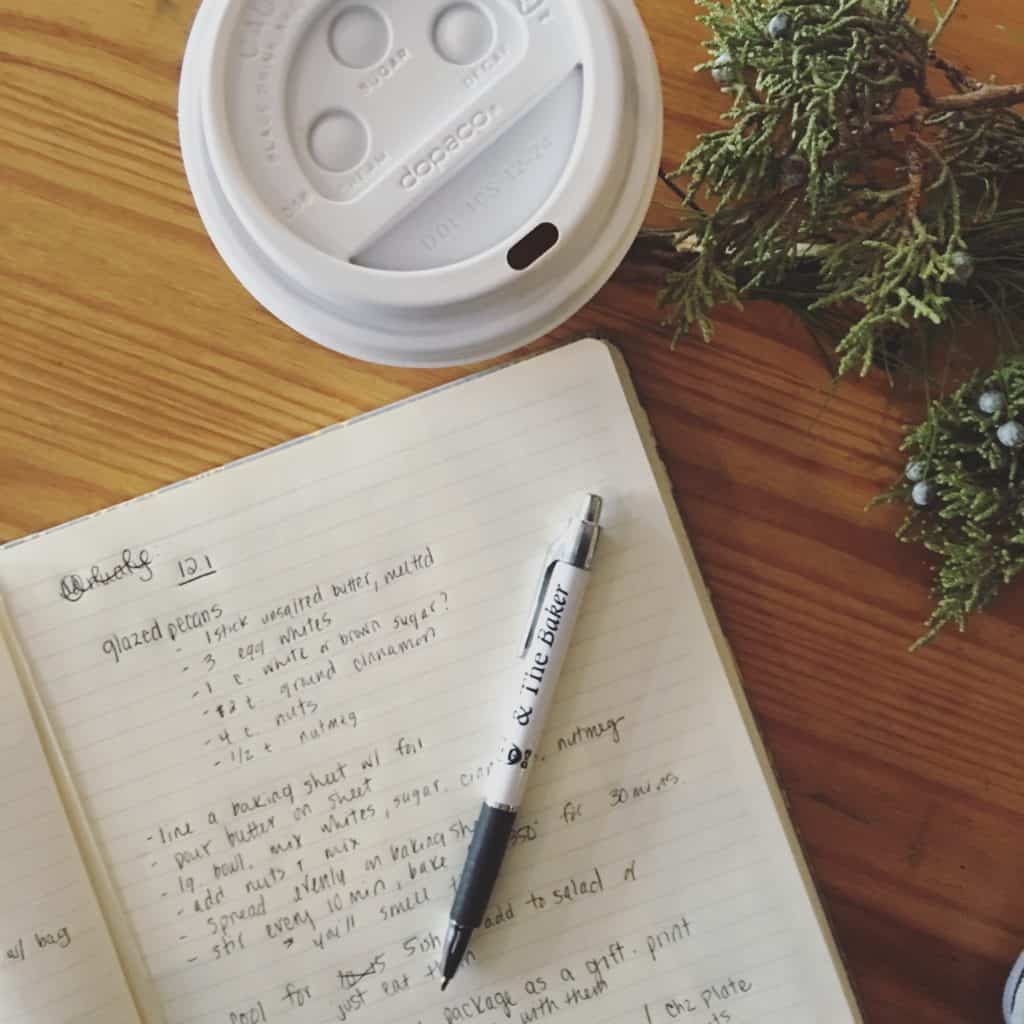 SUGAR
DECAF
CREAM
dopaco
12.1
glazed pecans
- 1 stick unsalted butter, melted
- 3 egg whites
- 1 c. white or brown sugar?
- 2 t. ground cinnamon
- 4 c. nuts
- 1/2 t nutmeg
- line a baking sheet w/ foil
- pour butter on sheet
- lg. bowl. mix whites, sugar, nutmeg
- add nuts + mix
- spread evenly on baking
- stir every 10 min, bake 350° for 30
you'll smell
cool for 5ish add to salad or
just eat
package as a gift. print
with them
1 chz plate
w/ bag
& The Baker